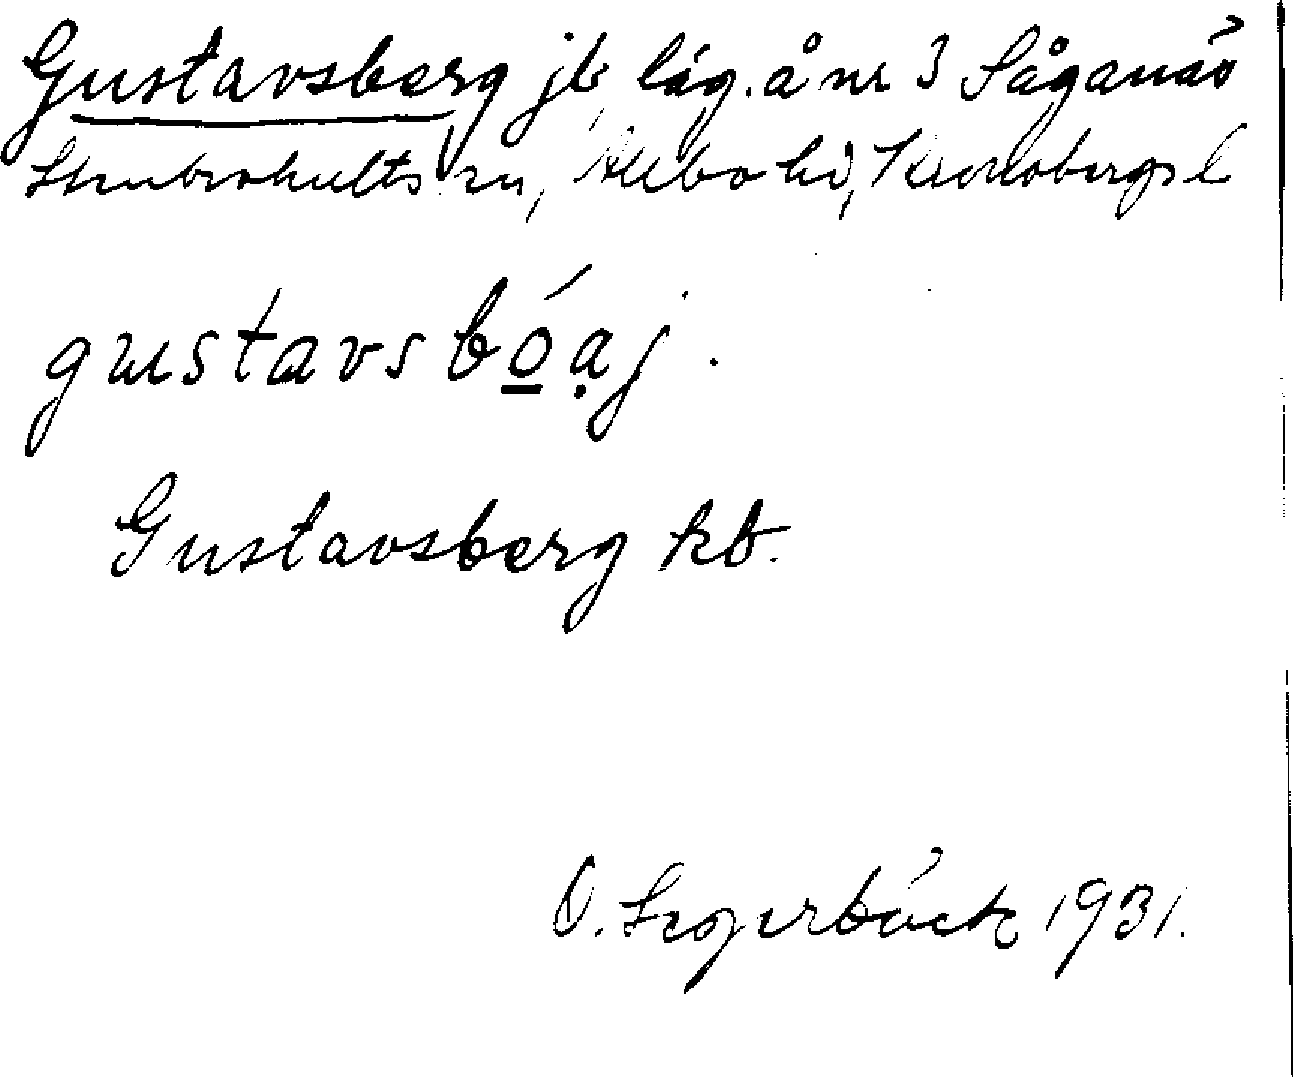 Gustavsberg jb, läg. å nr 3 Såganäs
Stenbrohults sn, Allbo hd, Kronobergs l
gustavsbóạj.
Gustavsberg kb.
O. Segerbäck 1931.